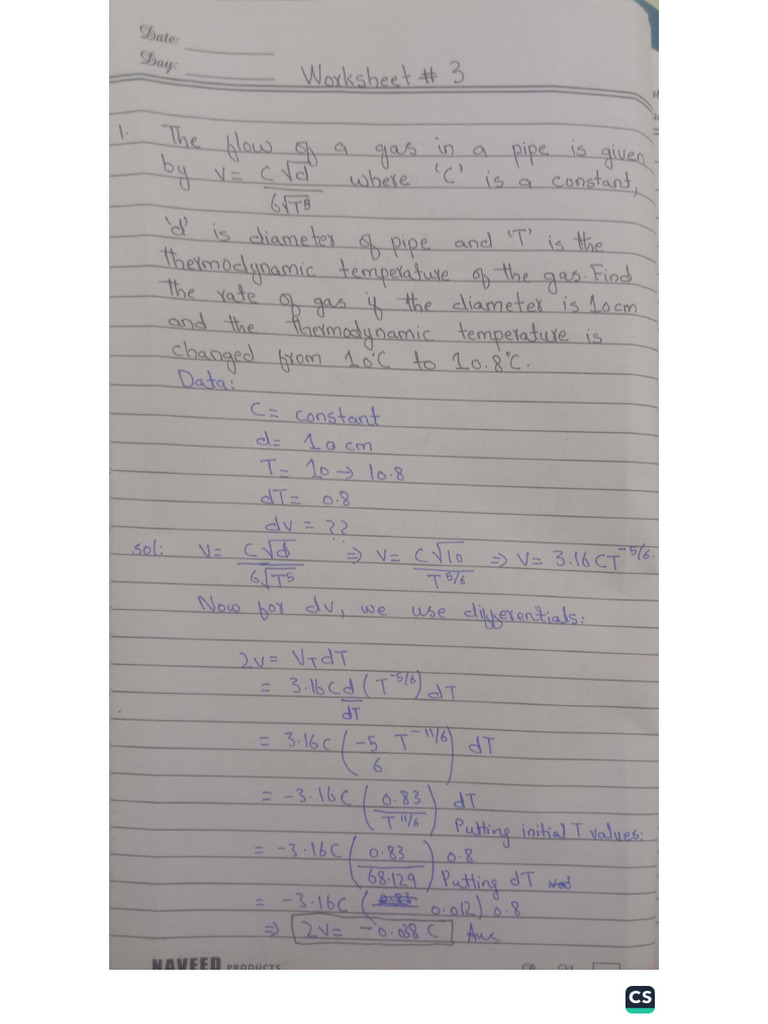 Date:
Day:
Worksheet # 3
1. The flow of a gas in a pipe is given
by v = C√d / 6√T⁵ where 'C' is a constant,
'd' is diameter of pipe and 'T' is the
thermodynamic temperature of the gas. Find
the rate of gas if the diameter is 10cm
and the thermodynamic temperature is
changed from 10°C to 10.8°C.
Data:
C = constant
d = 10 cm
T = 10 → 10.8
dT = 0.8
dv = ??
sol: v = C√d / 6√T⁵ ⇒ v = C√10 / T^5/6 ⇒ v = 3.16 CT^-5/6.
Now for dv, we use differentials:
2v = V_T dT
= 3.16C d/dT (T^-5/6) dT
= 3.16C (-5/6 T^-11/6) dT
= -3.16C (0.83 / T^11/6) dT
Putting initial T values:
= -3.16C (0.83 / 68.129) 0.8
Putting dT
= -3.16C (0.012) 0.8
⇒ 2v = -0.038 C Ans
NAVEED PRODUCTS
CS